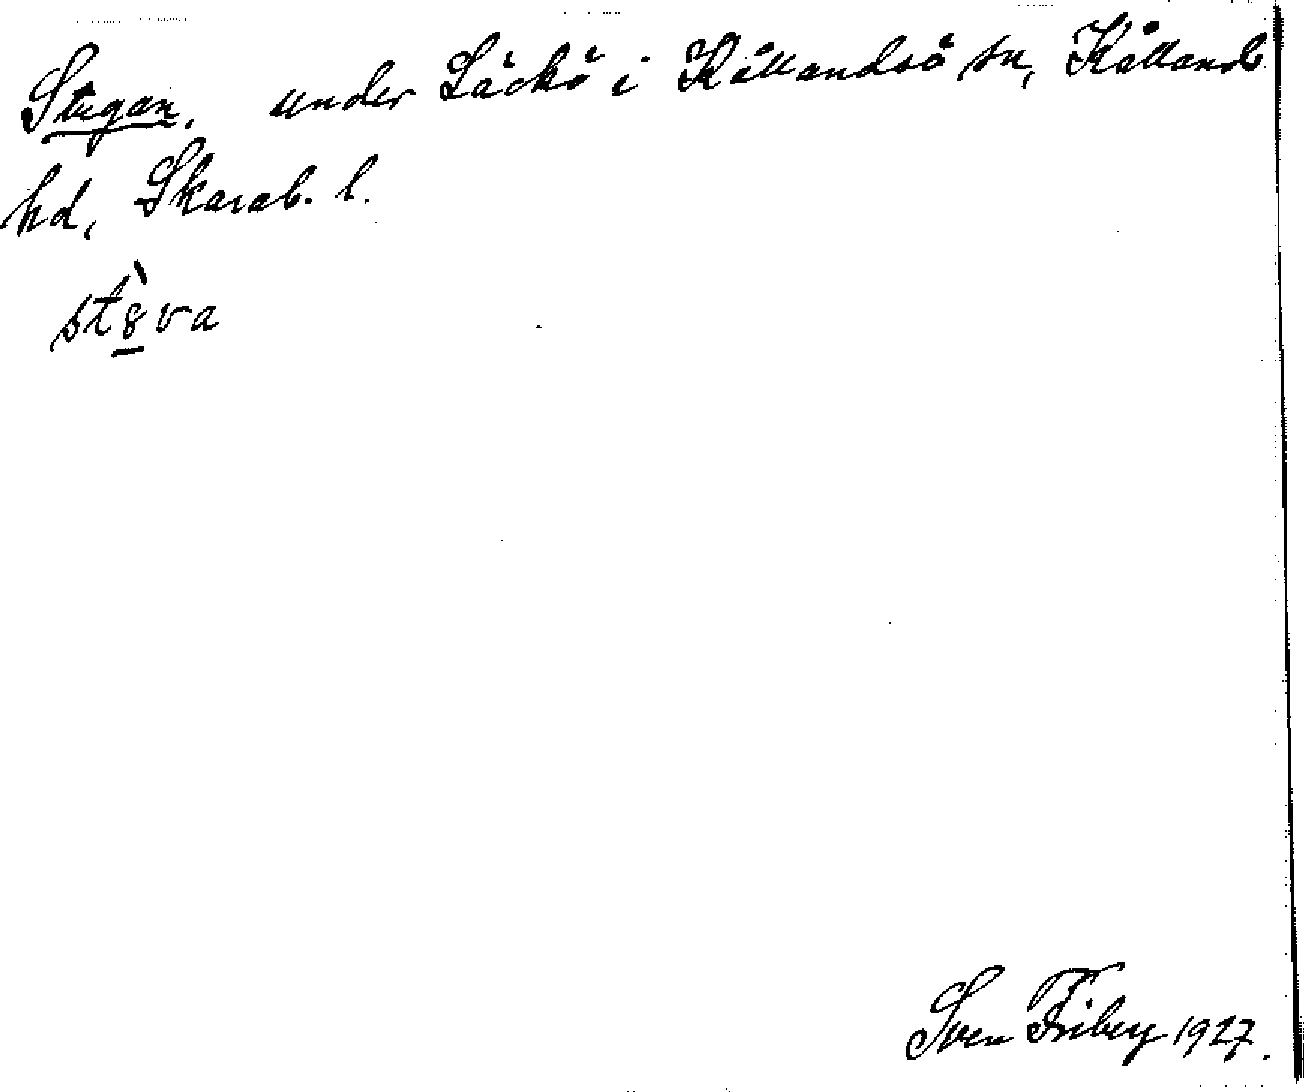 Stugan, under Läckö i Kållandsö sn, Kållands
hd, Skarab. l.
st8̲̀va
Sven Friberg 1927.